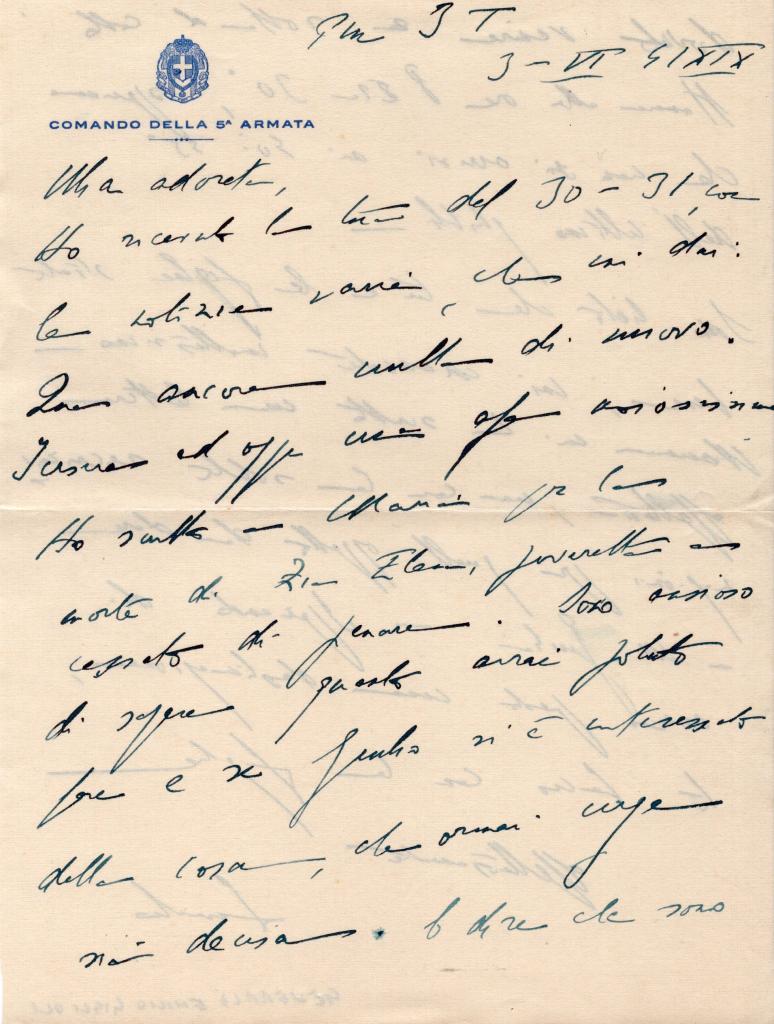 PM 3 T
3 - VI 41 XIX
COMANDO DELLA 5ª ARMATA
Mia adorata,
Ho ricevuto la tua del 30 - 31, con
le notizie varie, che mi dai.
Qua ancora nulla di nuovo.
Iersera ed oggi una afa noiosissima
Ho scritto a Maria per la
morte di Zia Elena, poveretta ha
cessato di penare. Sono ansioso
di sapere quanto avrai potuto
fare e se Giulio si è interessato
della cosa, che ormai urge
sia decisa. E dire che sono